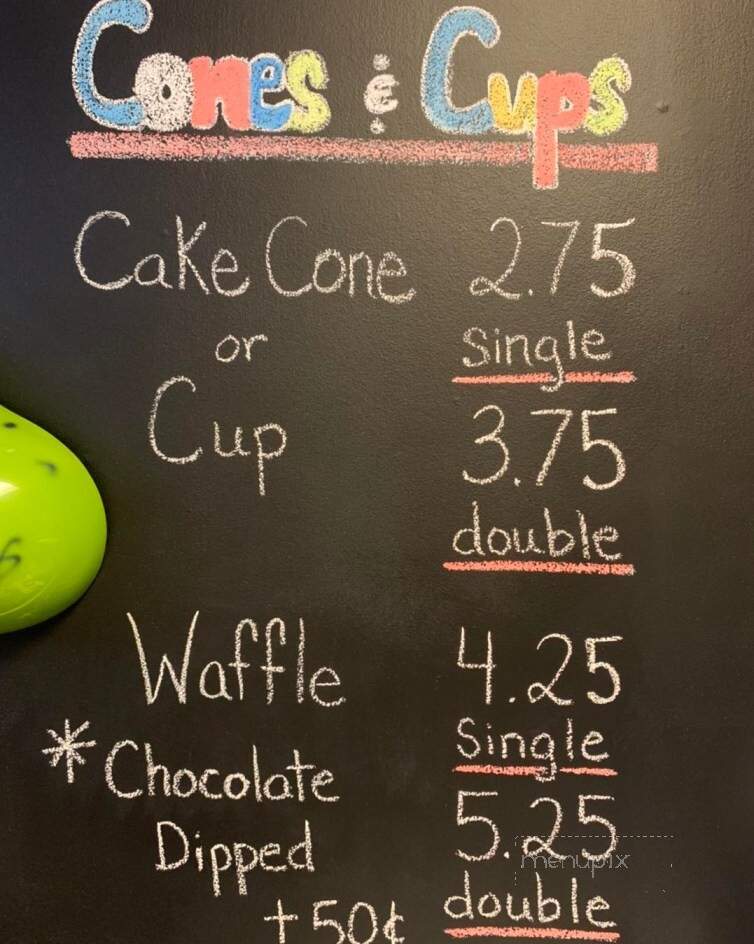 Cones & Cups
Cake Cone 2.75
or single
Cup 3.75
double
Waffle 4.25
* Chocolate Single
Dipped 5.25
+50¢ double
menupix